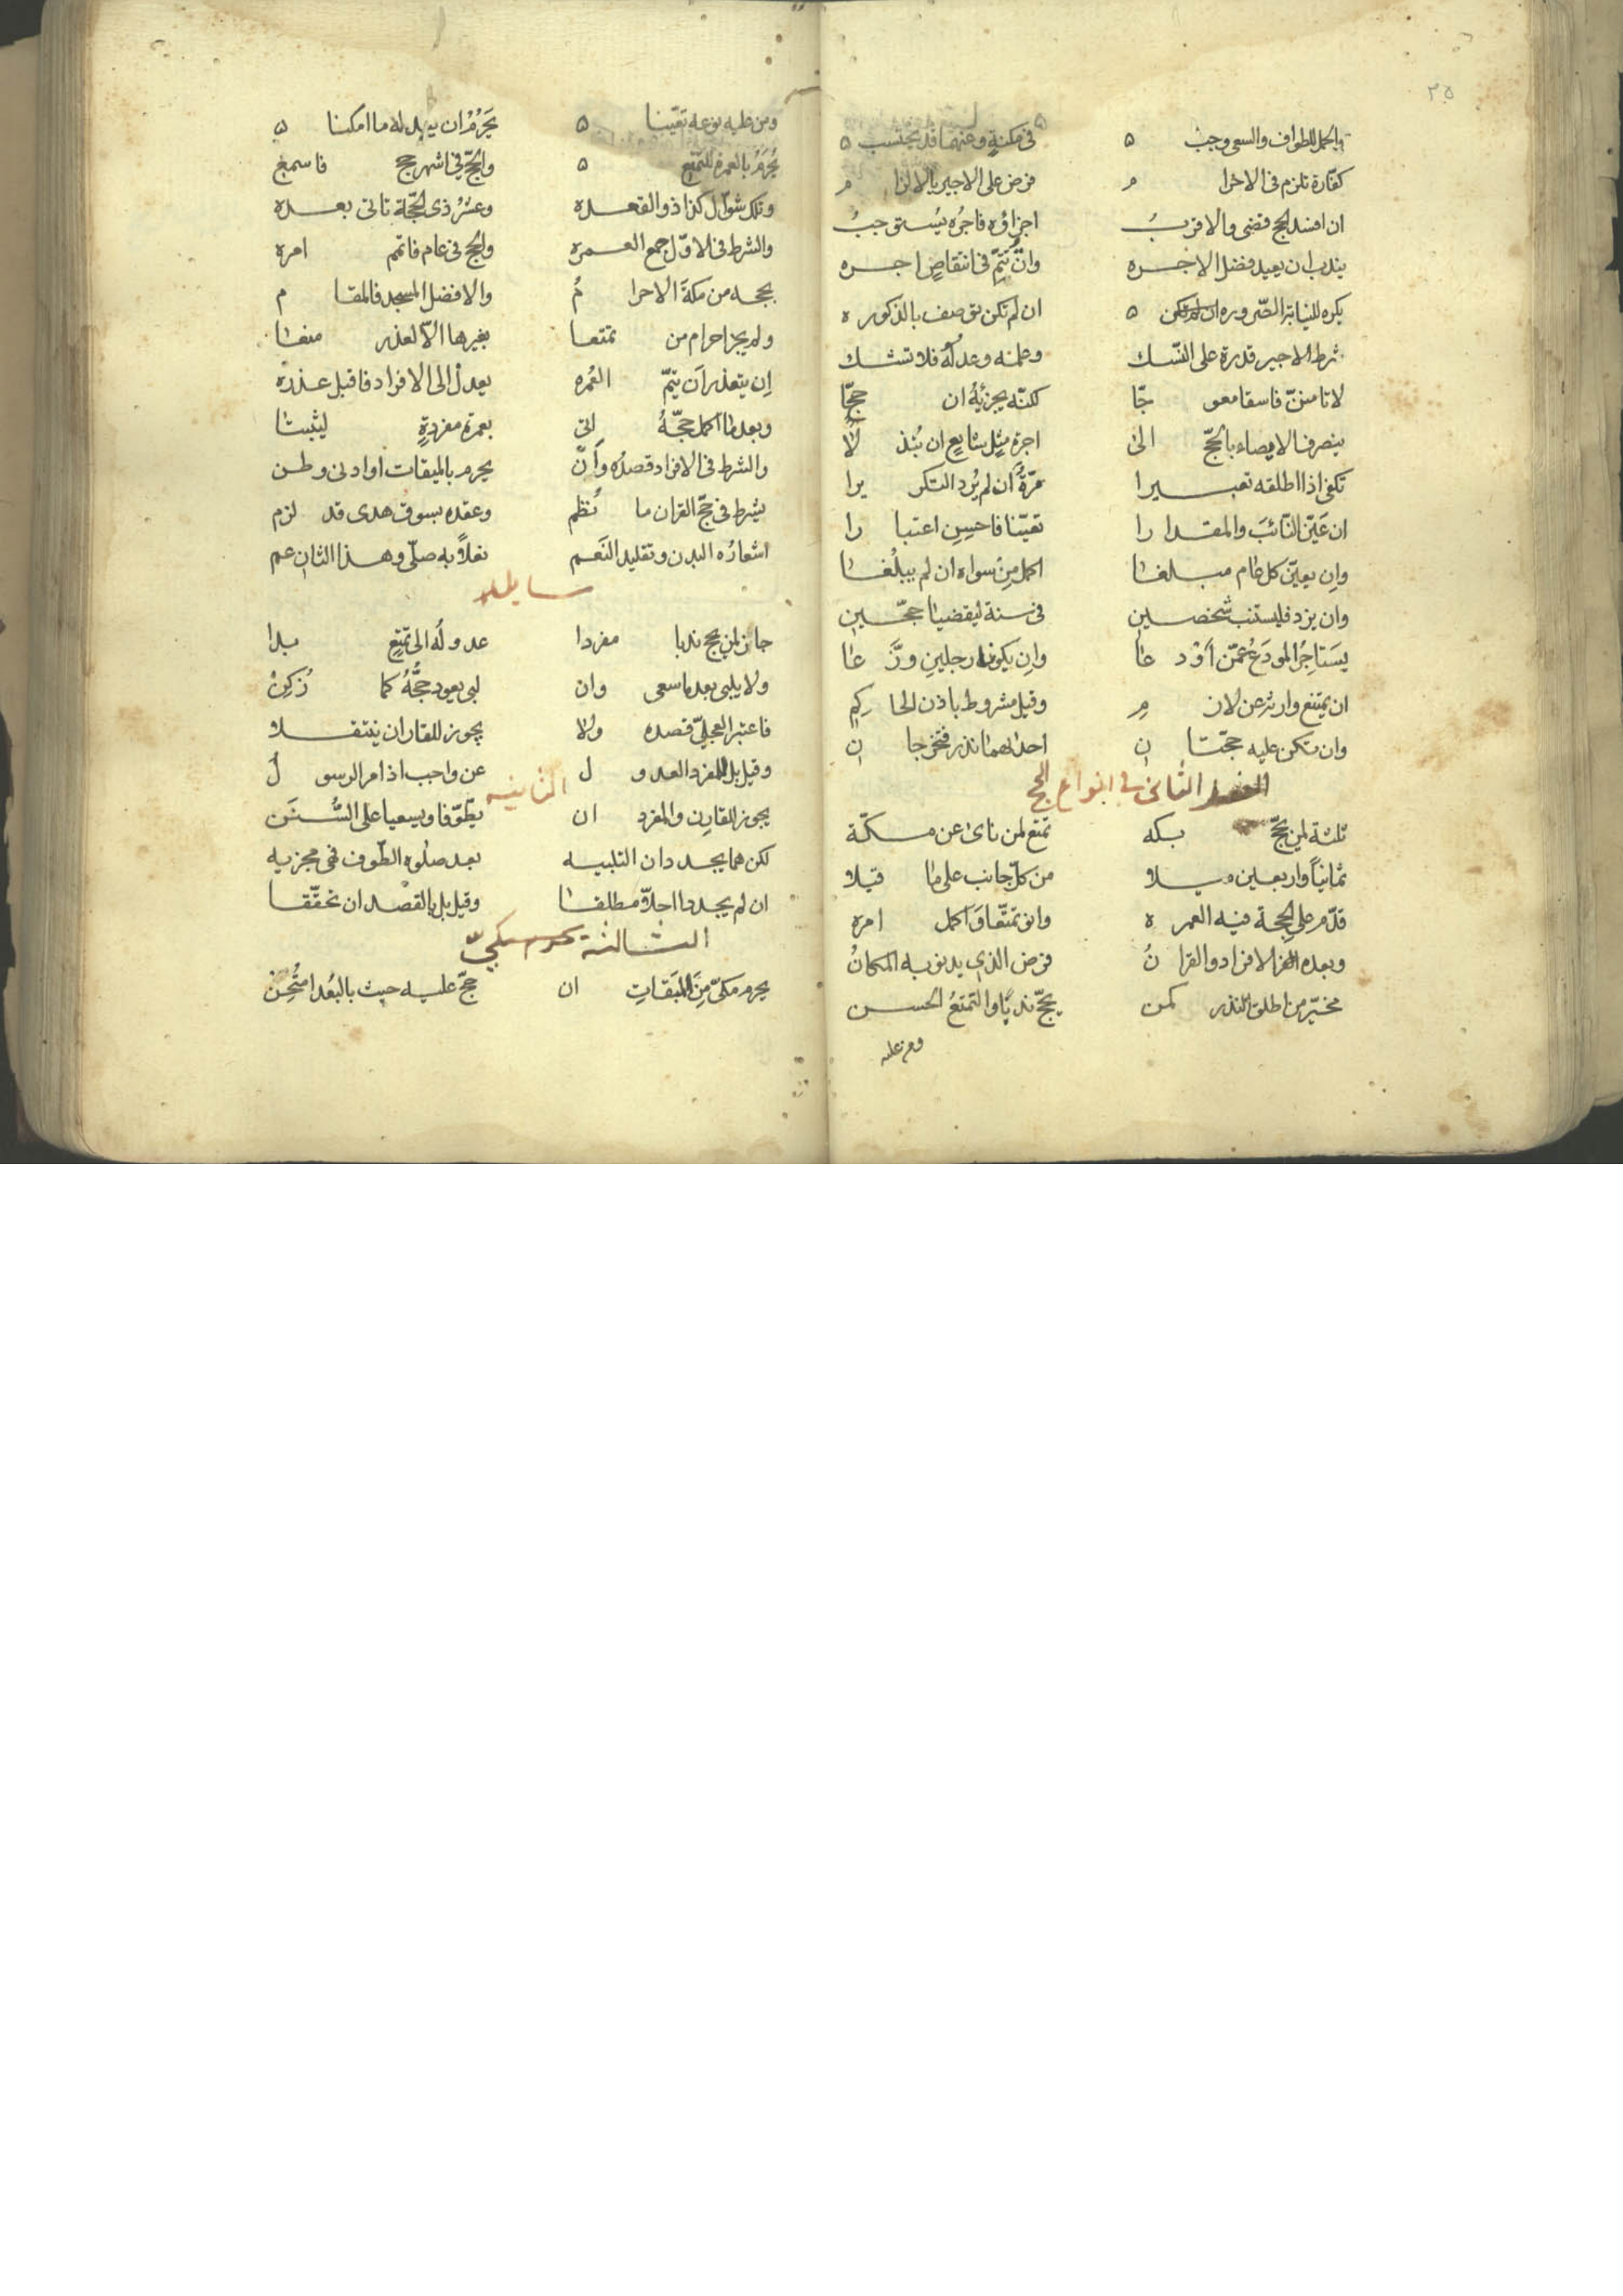 ٣٥
والحمل للطواف والسعى وجب في مكنة وعنهما قد يحتسب
كفارة تلزم فى الاحرا م فرض على الاجير بالالزا م
ان افسد الحج قضى والاقرب اجزاؤه فاجره يستوجب
يندب ان يعيد فضل الاجره وان يتم فى انتقاص اجره
يكره للنيابة الصروره ان لم تكن توصف بالذكوره
شرط الاجير قدرة على النسك وعلمه وعدله فلا تشك
لا تامنن فاسقا معو جّا لكنه يجزئه ان حجّا
ينصرف الايصاء بالحجّ الى اجرة مثل شايع ان بُذ لا
تكفى اذا اطلقه تعبيرا مرّةٌ ان لم يُرد التكر يرا
ان عَيّن النّائبَ والمقدا را تعيّنا فاحسِن اعتبا را
وان يعيّن كل عام مبلغا اكمل من سواه ان لم يبلُغا
وان يزد فليستنب شخصين فى سنة ليقضيا حجّين
يستاجرُ المودَع عمّن اوْد عا وان يكونا رجلين وزّ عا
ان يمتنع وارثه عن لاز م وقيل مشروط باذن الحا كم
وان تكن عليه حجّتا ن احداهما نذر فتخرجا ن
الفصل الثانى فى انواع الحج
ثلثة لمن يحجّ بكه تمتع لمن نأى عن مكّة
ثمانياً واربعين ميلا من كلّ جانب على ما قيلا
قدّم على الحجة فيه العمر ه وانو تمتّعا وَاكمل امره
وبعده الافراد والقرا نُ فرض الذي يدنو به المكانُ
مخيّر من اطلق النذر كمن يحجّ ندبًا والتمتعُ الحسن
ومن عليه
ومن عليه نوعه تعيّنا يَحرُمُ ان يبدله ما امكنا
يُحرَمُ بالعمرة للتمتع والحجّ فى اشهر حج فاسمع
وتلك شوّال كذا ذو القعده وعشرُ ذى الحجّة تاتى بعده
والشرط فى الاوّل جمع العمره والحج فى عام فاتمم امره
بحجه من مكة الاحرا مُ والافضل المسجد فالمقا م
ولم يجز احرام من تمتعا بغيرها الّا لعذر منعا
اِن يتعذر اَن يتمّ العُمره يعدل الى الافراد فاقبل عذره
وبعد ما اكمل حجّهُ اتى بعمرة مفردةٍ ليثبتا
والشرط فى الافراد قصدُه وَاَنّ يحرم بالميقات او ادنى وطن
يشرط فى حجّ القران ما نُظم وعقده بسوق هدى قد لزم
اشعارُه البدن وتقليد النَعَم نعلاً به صلّى وهذا الثان عم
مسايل
جاز لمن يحج ندبا مفردا عدولُه الى تمتعٍ بدا
ولا يلبى بعد ما سعى وان لبى يعود حجُّهُ كما زُكِنْ
فاعتبر العجلىّ قصده ولا يجوز للقارن ان ينتقلا
وقيل بل للمفرد العدو ل عن واجب اذ امر الرسو لُ
الثانيه
يجوز للقارِن والمفرد ان يطّوّفا ويسعيا على السُّنَن
لكن هما يجددان التلبيه بعد صلوة الطّوف فهى مجزيه
ان لم يجددا احلّا مطلقا وقيل بل بالقصد ان تحقّقا
الثالثة يحرم مكىّ
يحرم مكىّ مِنَ الميقاتِ ان حجّ عليه حيث بالبُعد امتُحِن